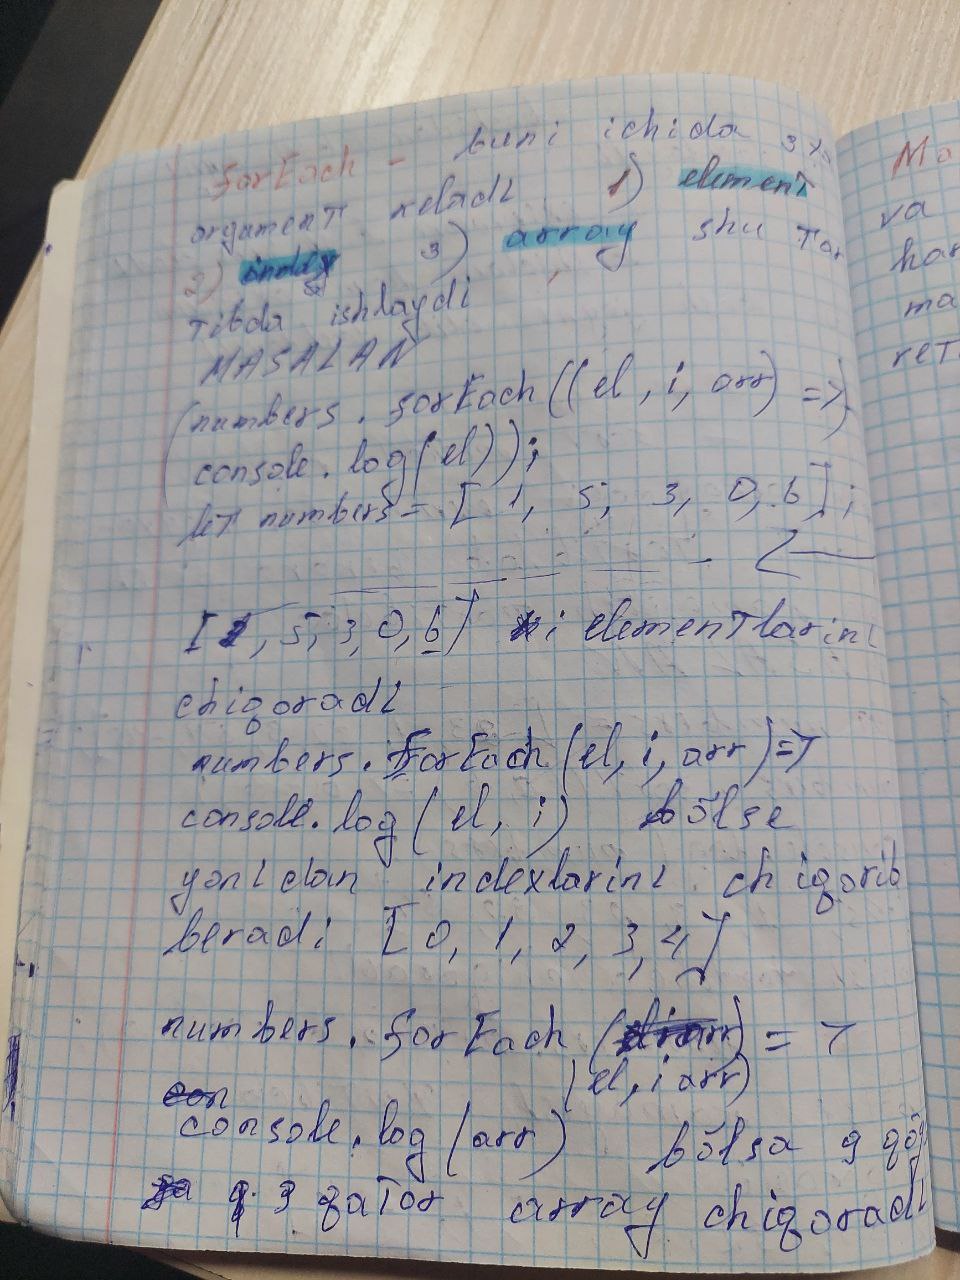 forEach - buni ichida 3 ta
argument keladi 1) element
2) index 3) array shu tar
tibda ishlaydi
MASALAN
(numbers.forEach((el, i, arr) =>
(console.log(el));
let numbers = [1, 5, 3, 0, 6];
[1, 5, 3, 0, 6] i elementlarini
chiqoradi
numbers.forEach(el, i, arr) =>
console.log(el, i) bõlse
yonidan indexlarini chiqorib
beradi [0, 1, 2, 3, 4]
numbers.forEach ( ) =>
(el, i arr)
console.log(arr) bõlsa
3 qator array chiqoradi
Ma
va
har
ma
ret